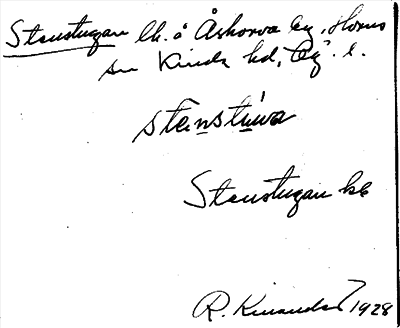 Stenstugan lh. å Åskorva äg., Horns
sn Kinda hd, Ög. l.
stenstùwa
Stenstugan
R. Kinander 1928